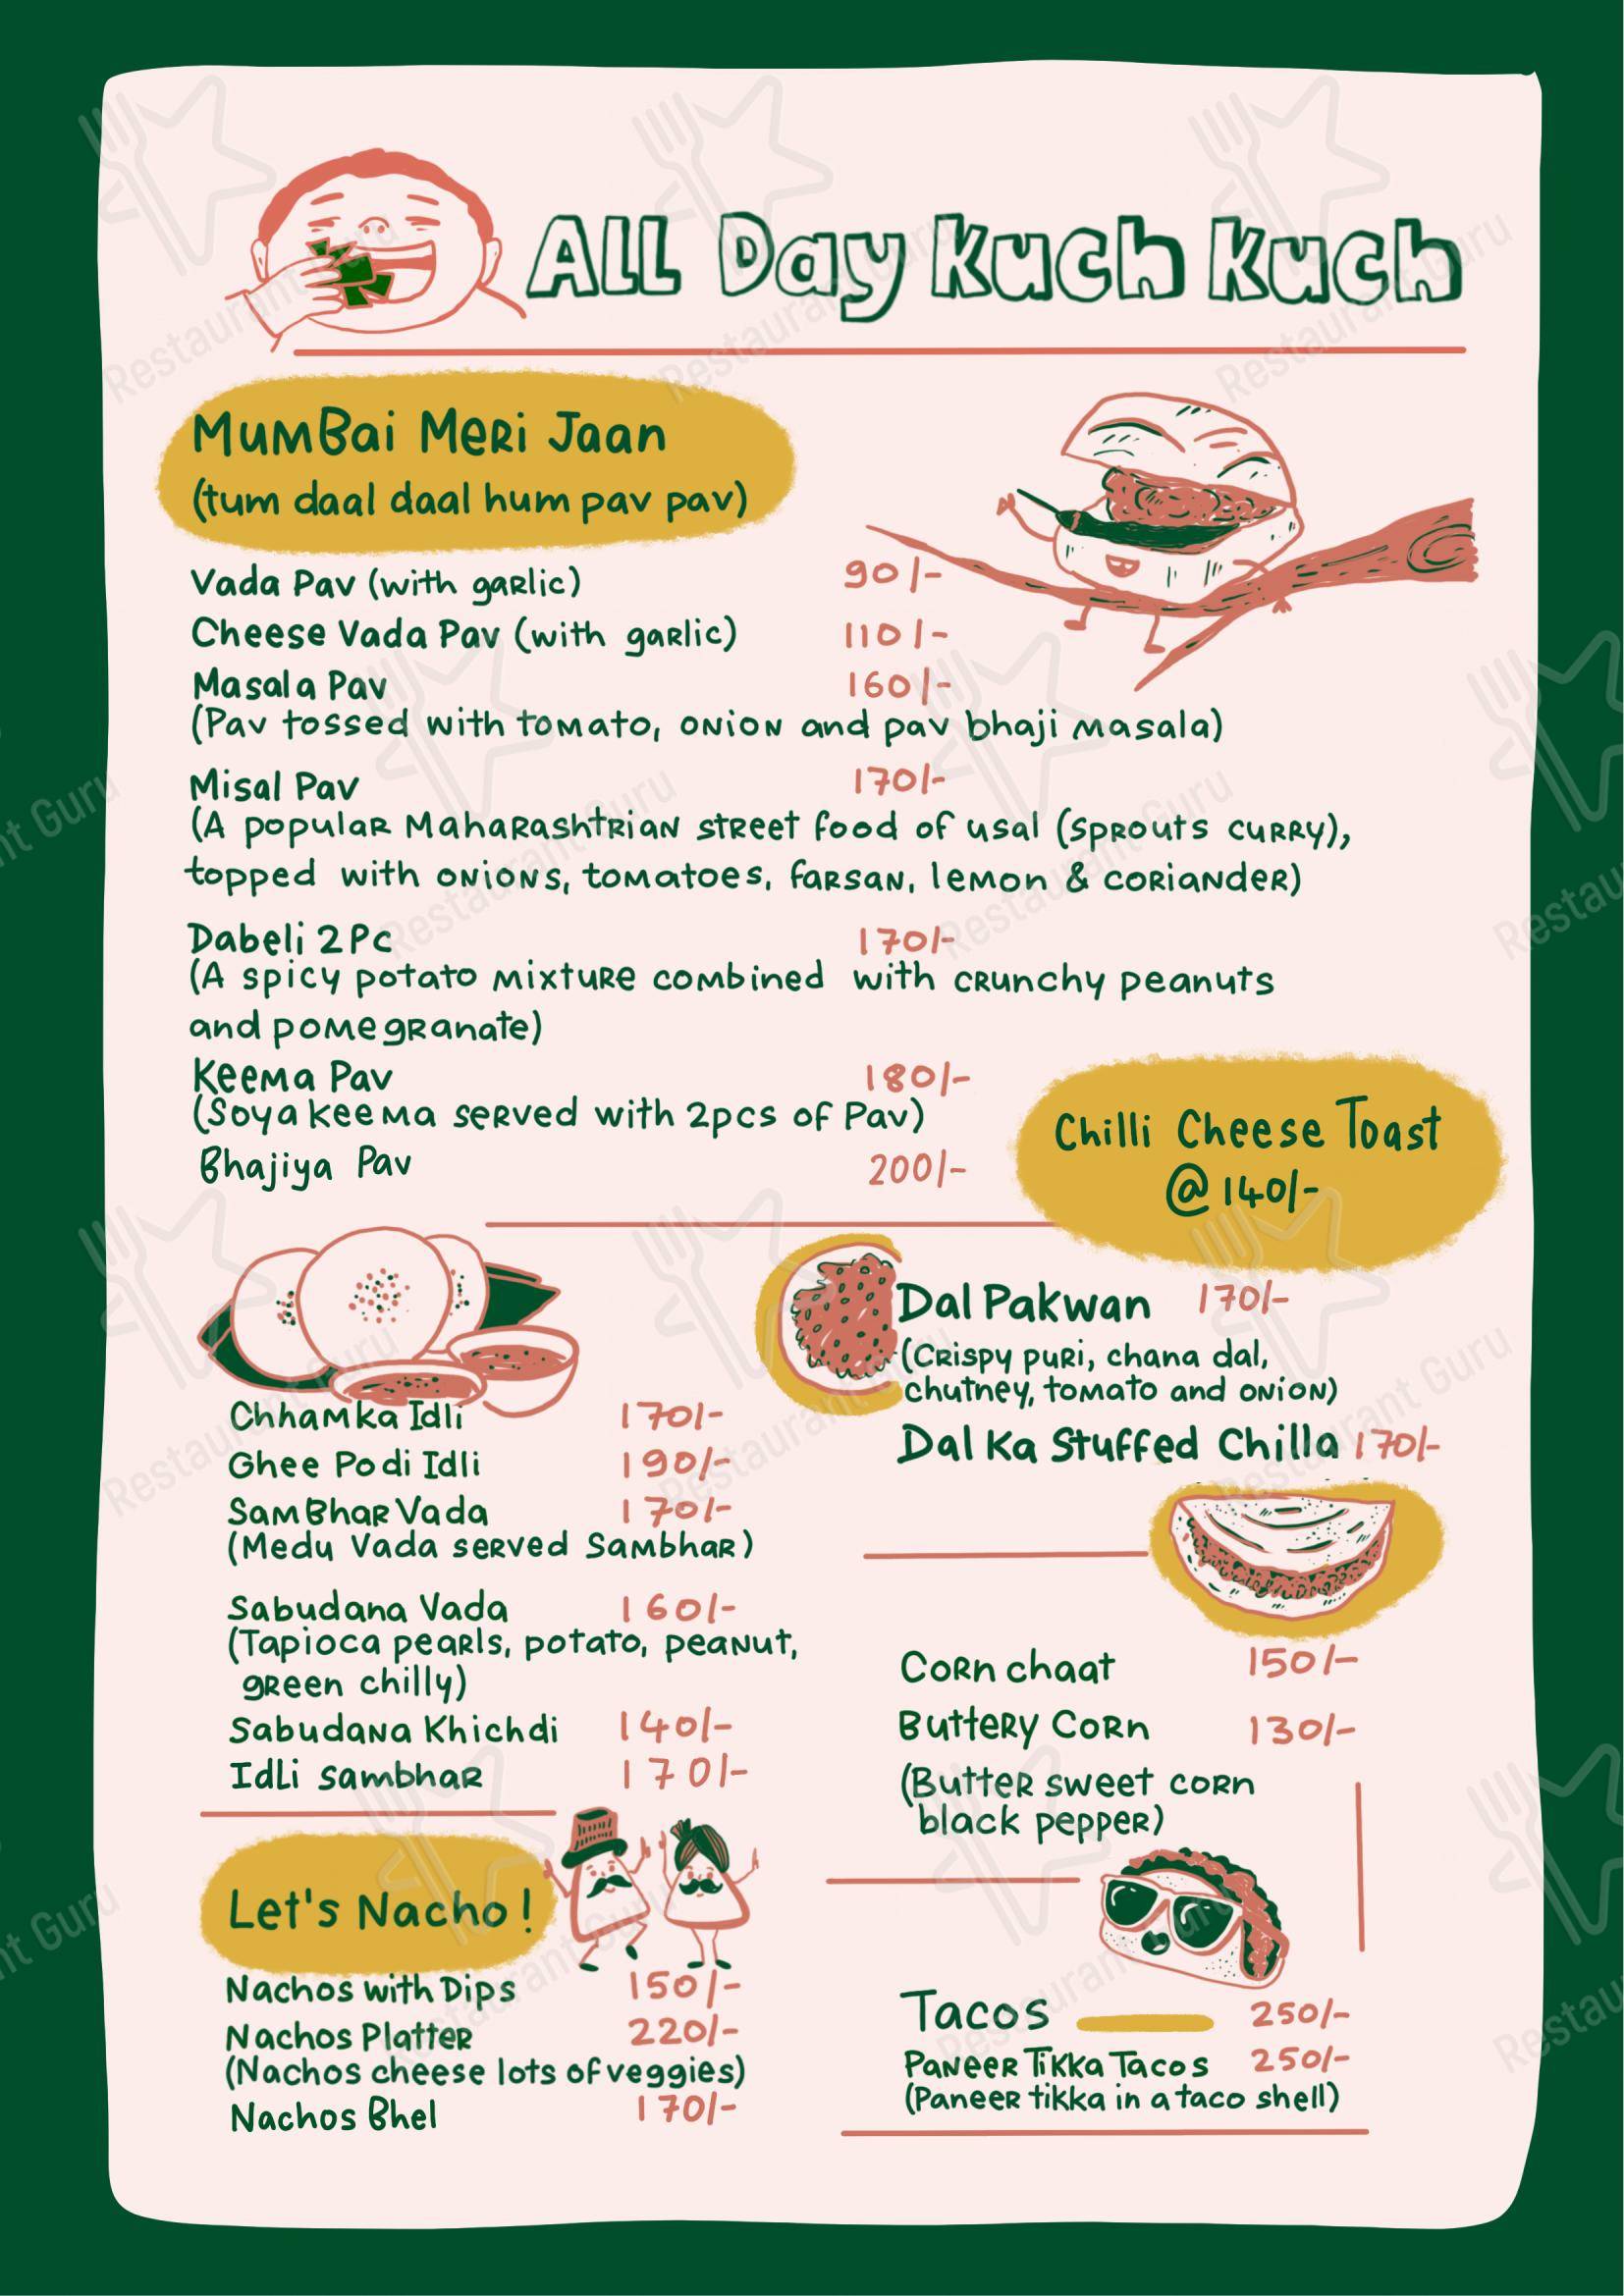 ALL Day Kuch Kuch
MumBai Meri Jaan
(tum daal daal hum pav pav)
Vada Pav (with garlic) 90/-
Cheese Vada Pav (with garlic) 110/-
Masala Pav 160/-
(Pav tossed with tomato, onion and pav bhaji masala)
Misal Pav 170/-
(A popular Maharashtrian street food of usal (sprouts curry),
topped with onions, tomatoes, farsan, lemon & coriander)
Dabeli 2Pc 170/-
(A spicy potato mixture combined with crunchy peanuts
and pomegranate)
Keema Pav 180/-
(Soya keema served with 2pcs of Pav)
Bhajiya Pav 200/-
Chilli Cheese Toast
@ 140/-
Chhamka Idli 170/-
Ghee Podi Idli 190/-
SamBhar Vada 170/-
(Medu Vada served Sambhar)
Sabudana Vada 160/-
(Tapioca pearls, potato, peanut,
green chilly)
Sabudana Khichdi 140/-
Idli sambhar 170/-
Let's Nacho!
Nachos with Dips 150/-
Nachos Platter 220/-
(Nachos cheese lots of veggies)
Nachos Bhel 170/-
Dal Pakwan 170/-
(Crispy puri, chana dal,
chutney, tomato and onion)
Dal Ka Stuffed Chilla 170/-
Corn chaat 150/-
Buttery Corn 130/-
(Butter sweet corn
black pepper)
Tacos 250/-
Paneer Tikka Tacos 250/-
(Paneer tikka in a taco shell)
Restaurant Guru